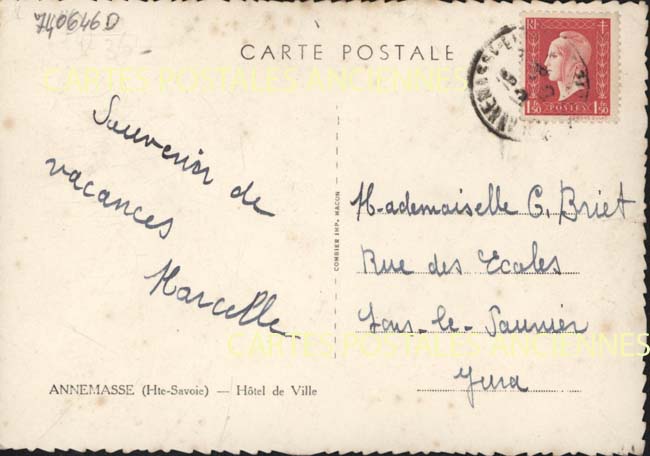 740646D
CARTE POSTALE
RF
1F50 POSTES 1F50
ANNEMASSE
CARTES POSTALES ANCIENNES
Souvenir de
vacances
Marcelle
Mademoiselle C. Briet
Rue des Ecoles
Lons-le-Saunier
Jura
COMBIER IMP. MACON
CARTES POSTALES ANCIENNES
ANNEMASSE (Hte-Savoie) — Hôtel de Ville